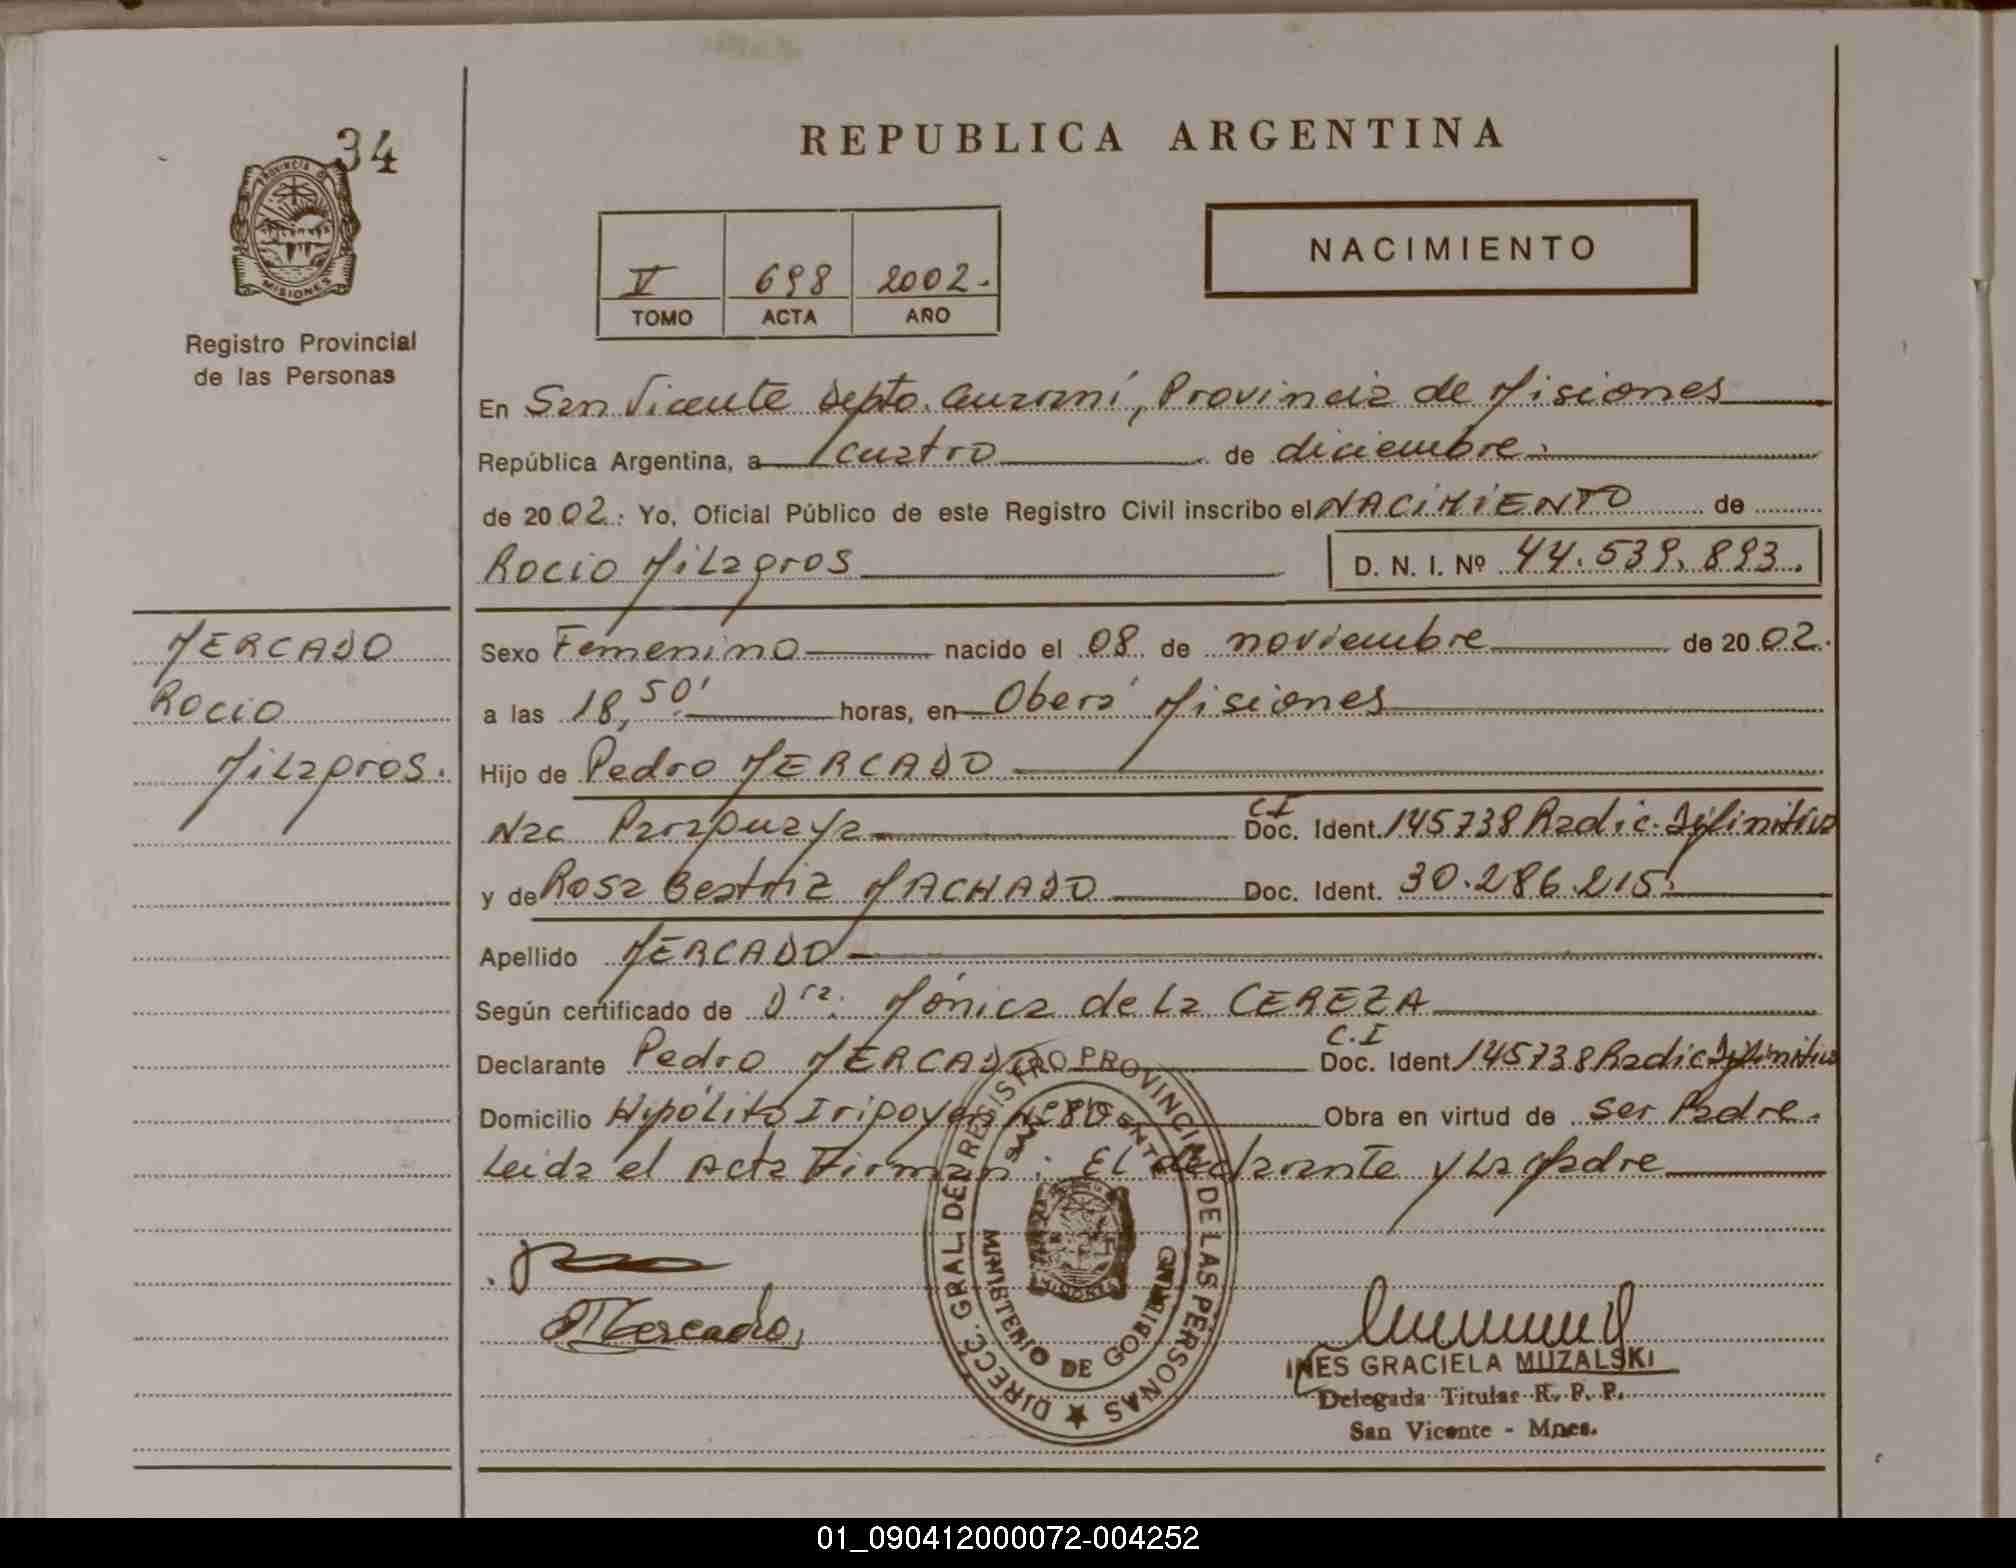 34
PROVINCIA DE
MISIONES
Registro Provincial
de las Personas
REPUBLICA ARGENTINA
V 698 2002.
TOMO ACTA AÑO
NACIMIENTO
En San Vicente Depto. Guaraní, Provincia de Misiones
República Argentina, a cuatro de diciembre.
de 2002. Yo, Oficial Público de este Registro Civil inscribo el NACIMIENTO de
Rocio Milagros D. N. I. Nº 44.539.893.
MERCADO
Rocio
Milagros.
Sexo Femenino nacido el 08 de noviembre de 2002.
a las 18,50' horas, en Oberá Misiones
Hijo de Pedro MERCADO
C I
Nac Paraguaya Doc. Ident. 145738 Radic. Difinitiva
y de Rosa Beatriz MACHADO Doc. Ident. 30.286.215.
Apellido MERCADO
Según certificado de Dra. Mónica de la CEREZA
C.I
Declarante Pedro MERCADO Doc. Ident. 145738 Radic Difinitiva
Domicilio Hipólito Irigoyen Nº 80 Obra en virtud de ser Padre.
Leida el Acta Firman: El declarante y la Madre
DIRECC. GRAL. DEL REGISTRO PROVINCIAL DE LAS PERSONAS
SAN VICENTE
MINISTERIO DE GOBIERNO
MISIONES
Mercado
INES GRACIELA MUZALSKI
Delegada Titular R. P. P.
San Vicente - Mnes.
01_090412000072-004252